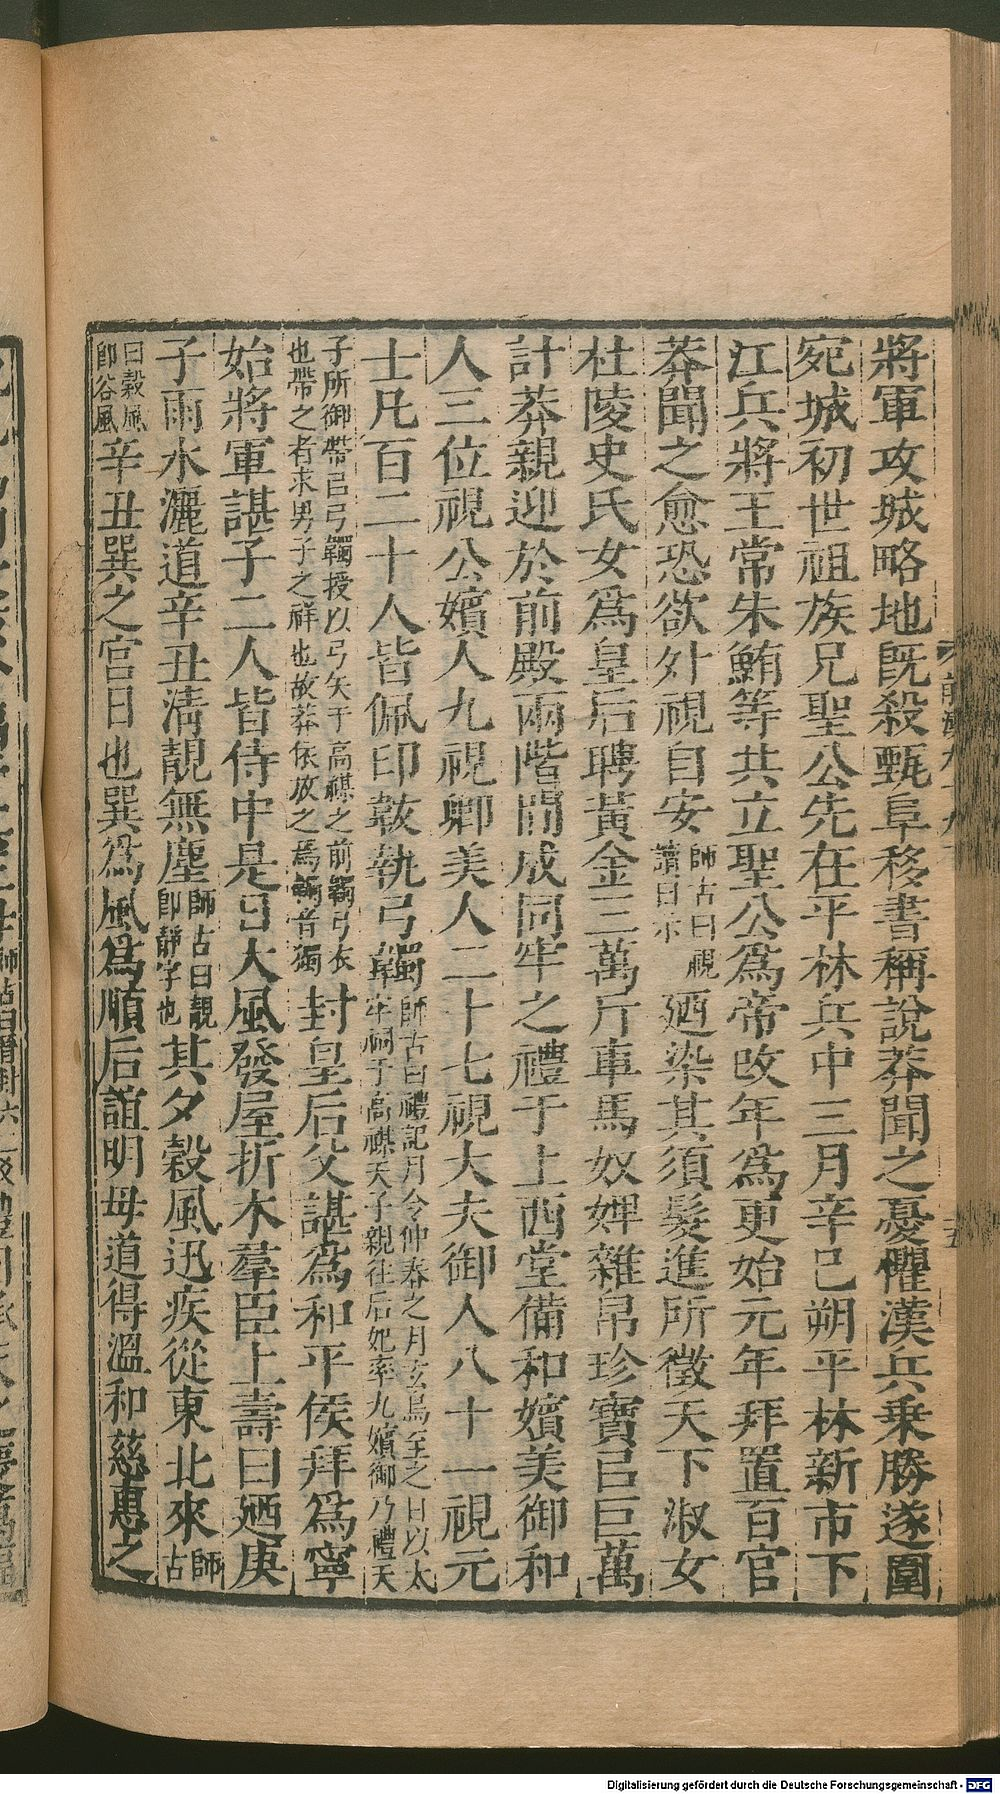 將軍攻城略地旣殺甄阜移書稱說莽聞之憂懼漢兵乗勝遂圍
宛城初世祖族兄聖公先在平林兵中三月辛巳朔平林新市下
江兵將王常朱鮪等共立聖公爲帝改年爲更始元年拜置百官
莽聞之愈恐欲外視自安師古曰視讀曰示廼染其須髮進所徵天下淑女
杜陵史氏女爲皇后聘黃金三萬斤車馬奴婢雜帛珍寶㠯巨萬
計莽親迎於前殿兩階閒成同牢之禮于上西堂備和嬪美御和
人三位視公嬪人九視卿美人二十七視大夫御人八十一視元
士凡百二十人皆佩印韍執弓韣師古曰禮記月令仲春之月玄鳥至之日以太牢祠于高禖天子親往后妃率九嬪御乃禮天
子所御帶㠯弓韣授以弓矢于高禖之前韣弓衣也帶之者求男子之祥也故莽依放之焉韣音獨封皇后父諶爲和平侯拜爲寧
始將軍諶子二人皆侍中是日大風發屋折木羣臣上壽曰廼庚
子雨水灑道辛丑淸靚無塵師古曰靚卽靜字也其夕穀風迅疾從東北來師古
曰穀風卽谷風辛丑巽之宮日也巽爲風爲順后誼明母道得溫和慈惠之
Digitalisierung gefördert durch die Deutsche Forschungsgemeinschaft - DFG